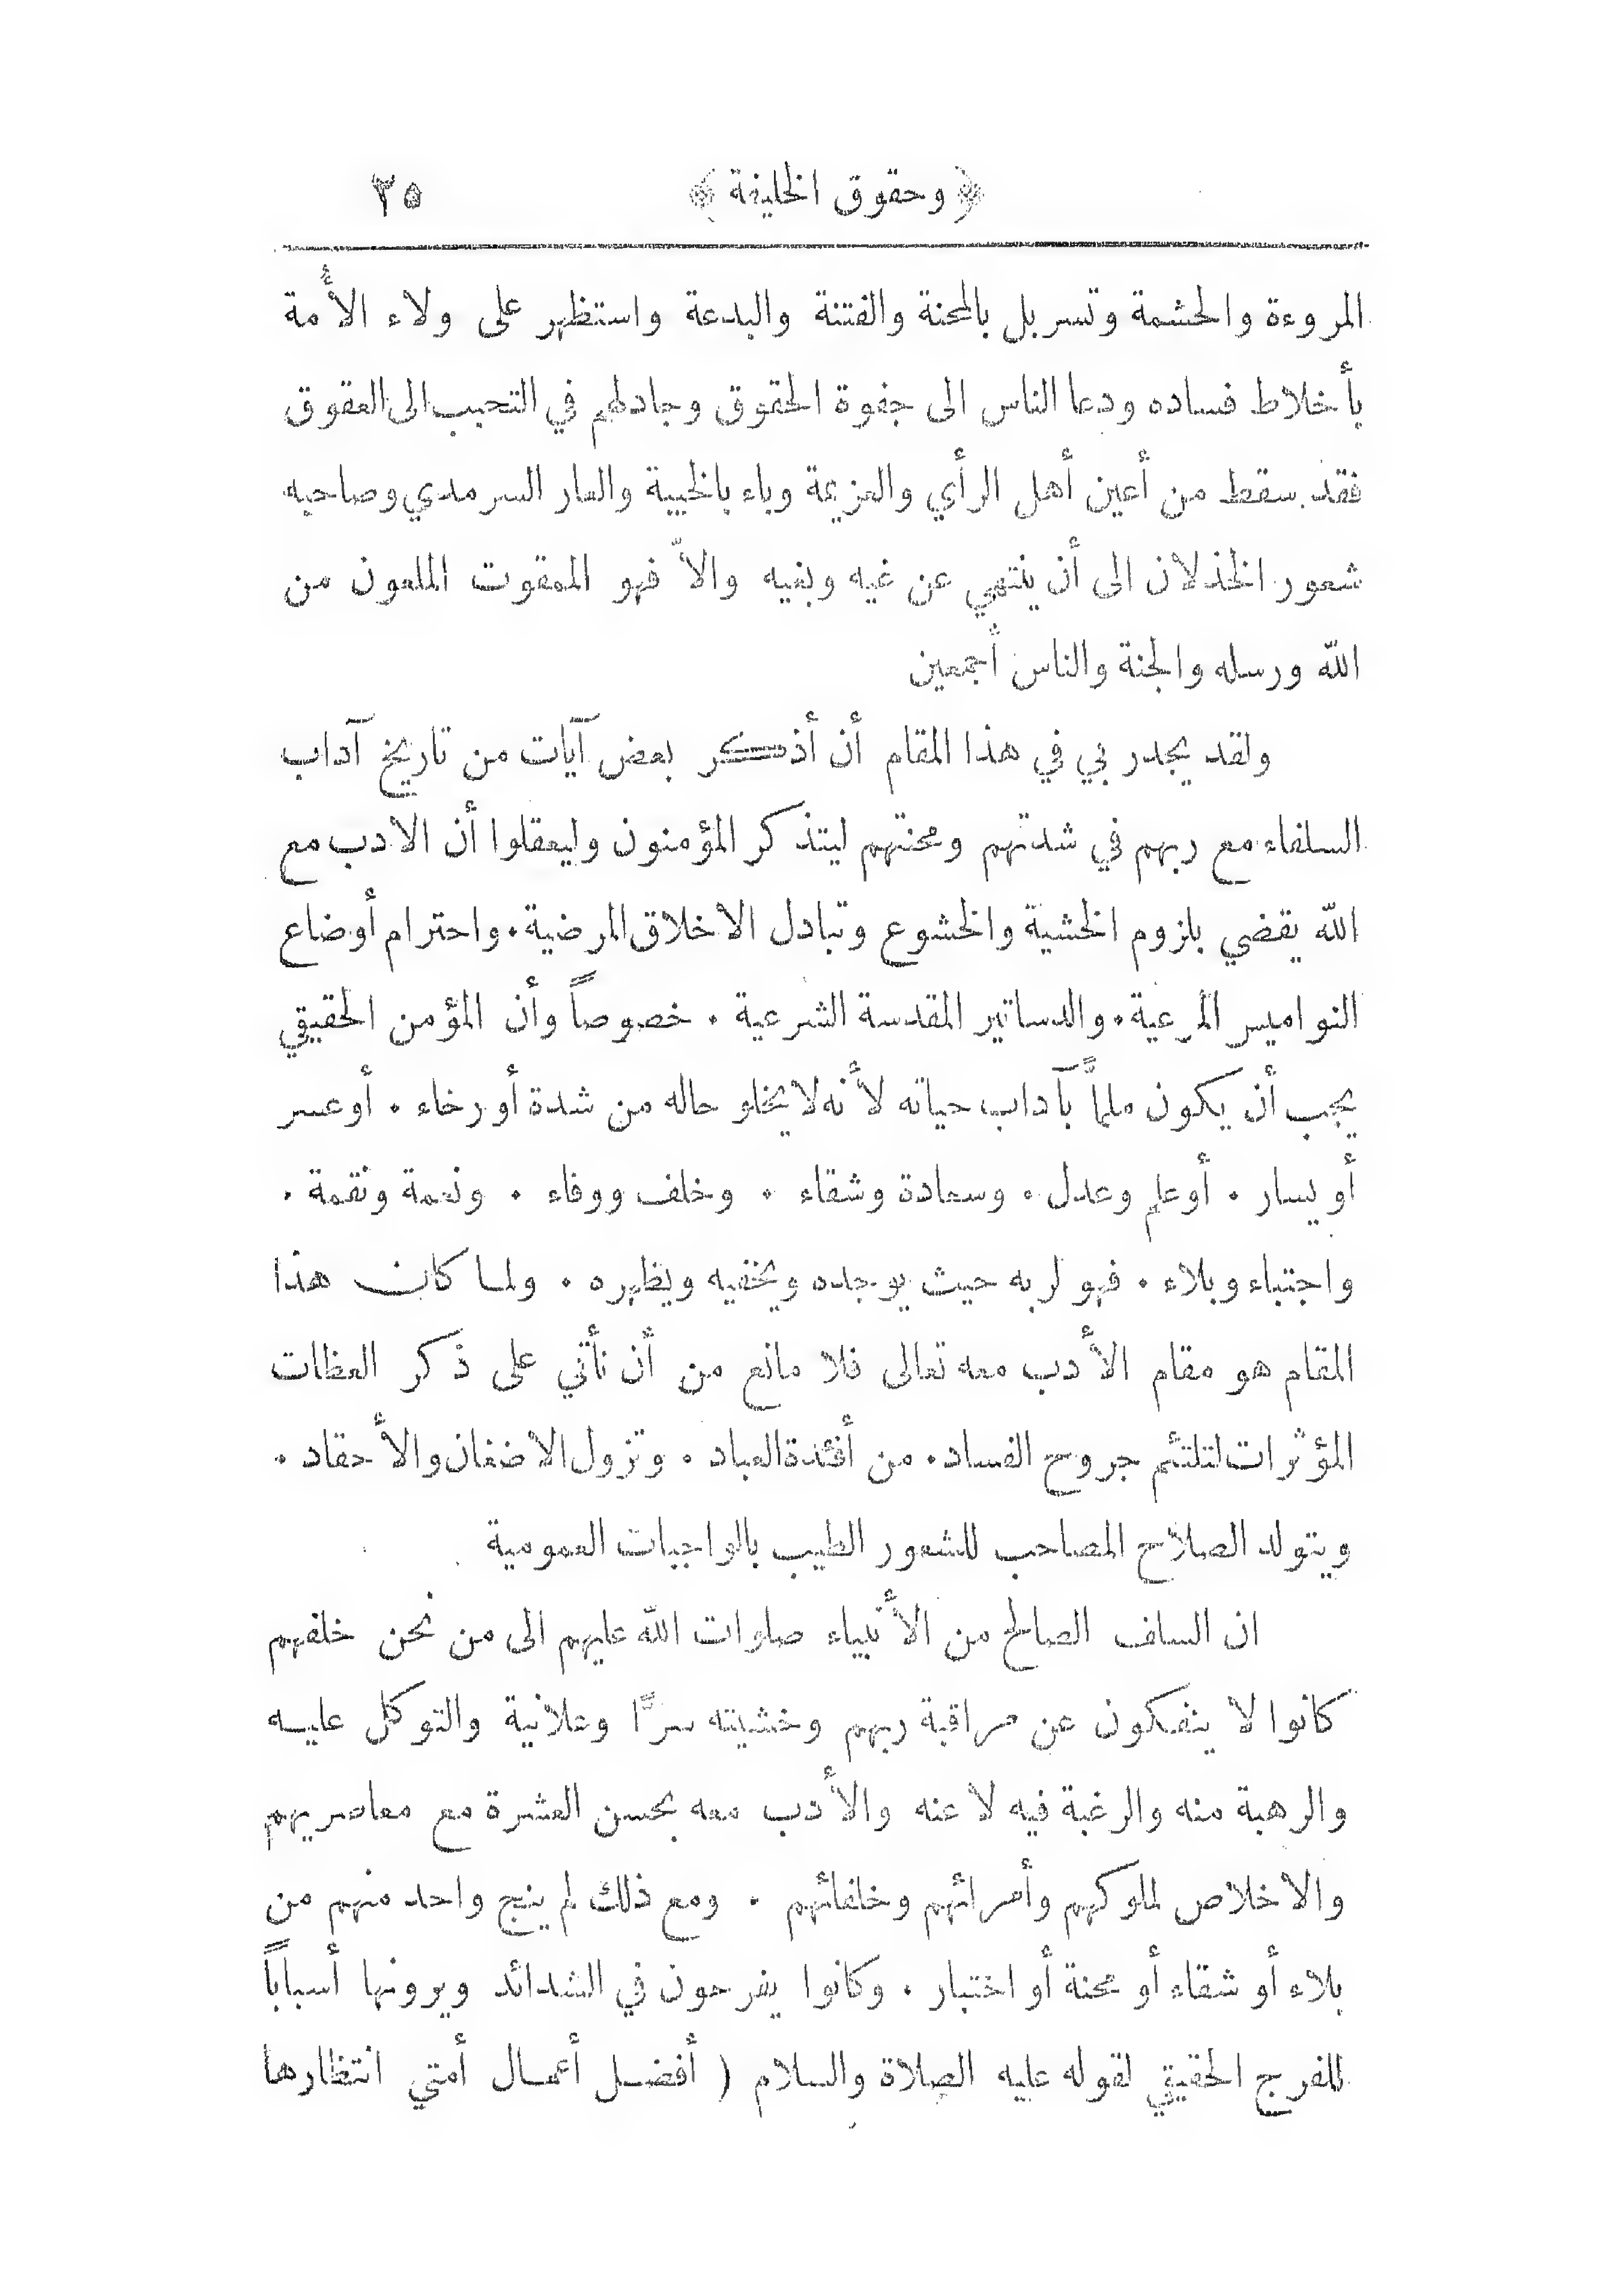 ﴿ وحقوق الخليفة ﴾ ٣٥
المروءة والحشمة وتسربل بالمحنة والفتنة والبدعة واستظهر على ولاء الأمة
بأخلاط فساده ودعا الناس الى جفوة الحقوق وجادلهم في التحبب الى العقوق
فقد سقط من أعين أهل الرأي والعزيمة وباء بالخيبة والعار السرمدي وصاحبه
شعور الخذلان الى أن ينتهي عن غيه وبغيه والاّ فهو الممقوت الملعون من
الله ورسله والجنة والناس أجمعين
ولقد يجدر بي في هذا المقام أن أذكر بعض آيات من تاريخ آداب
السلفاء مع ربهم في شدتهم ومحنتهم ليتذكر المؤمنون وليعقلوا أن الادب مع
الله يقضي بلزوم الخشية والخشوع وتبادل الاخلاق المرضية. واحترام أوضاع
النواميس المرعية. والدساتير المقدسة الشرعية . خصوصاً وأن المؤمن الحقيقي
يجب أن يكون ملماً بآداب حياته لأنه لا يخلو حاله من شدة أو رخاء . أو عسر
أو يسار . أو علم وعدل . وسعادة وشقاء . وخلف ووفاء . ونعمة ونقمة .
واجتباء وبلاء . فهو لربه حيث يوجده ويخفيه ويظهره . ولما كان هذا
المقام هو مقام الأدب معه تعالى فلا مانع من أن نأتي على ذكر العظات
المؤثرات لتلتئم جروح الفساد. من أفئدة العباد . وتزول الاضغان والأحقاد .
ويتولد الصلاح المصاحب للشعور الطيب بالواجبات العمومية
ان السلف الصالح من الأنبياء صلوات الله عليهم الى من نحن خلفهم
كانوا لا ينفكون عن مراقبة ربهم وخشيته سرًّا وعلانية والتوكل عليه
والرهبة منه والرغبة فيه لا عنه والأدب معه بحسن العشرة مع معاصريهم
والاخلاص لملوكهم وأمرائهم وخلفائهم . ومع ذلك لم ينج واحد منهم من
بلاء أو شقاء أو محنة أو اختبار . وكانوا يفرحون في الشدائد ويرونها أسباباً
للفرج الحقيقي لقوله عليه الصلاة والسلام ( أفضل أعمال أمتي انتظارها